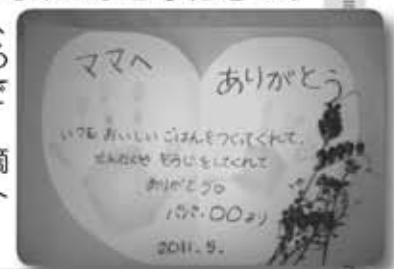 ママへ
ありがとう
いつも おいしい ごはんをつくってくれて、
せんたくや そうじをしてくれて
ありがとう。
パパ・〇〇より
2011.5.